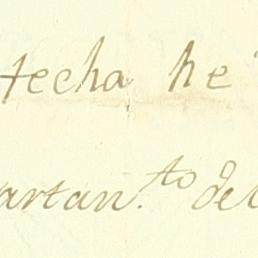 techa he
artan.to del